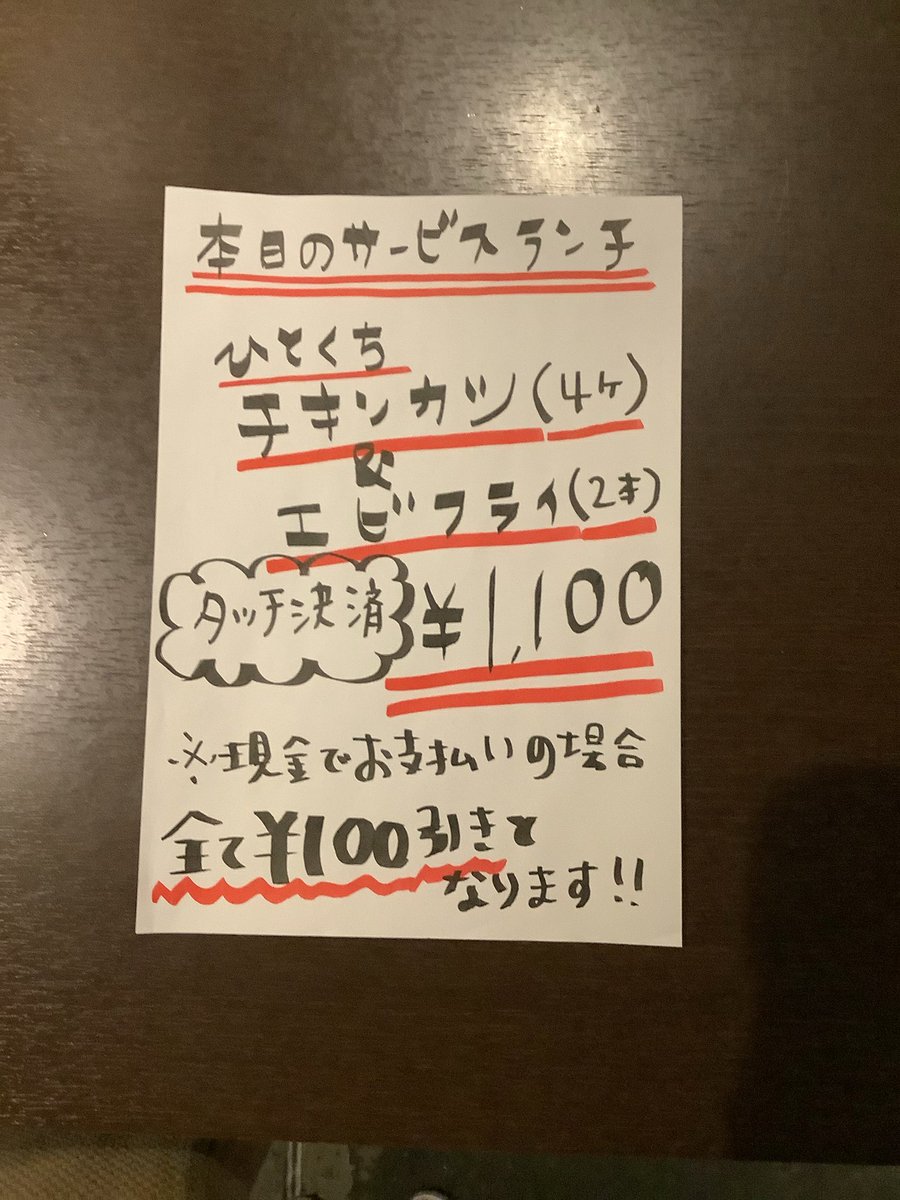 本日のサービスランチ
ひとくち
チキンカツ(4ケ)
&
エビフライ(2本)
タッチ決済 ¥1,100
※現金でお支払いの場合
全て¥100引きと
なります!!